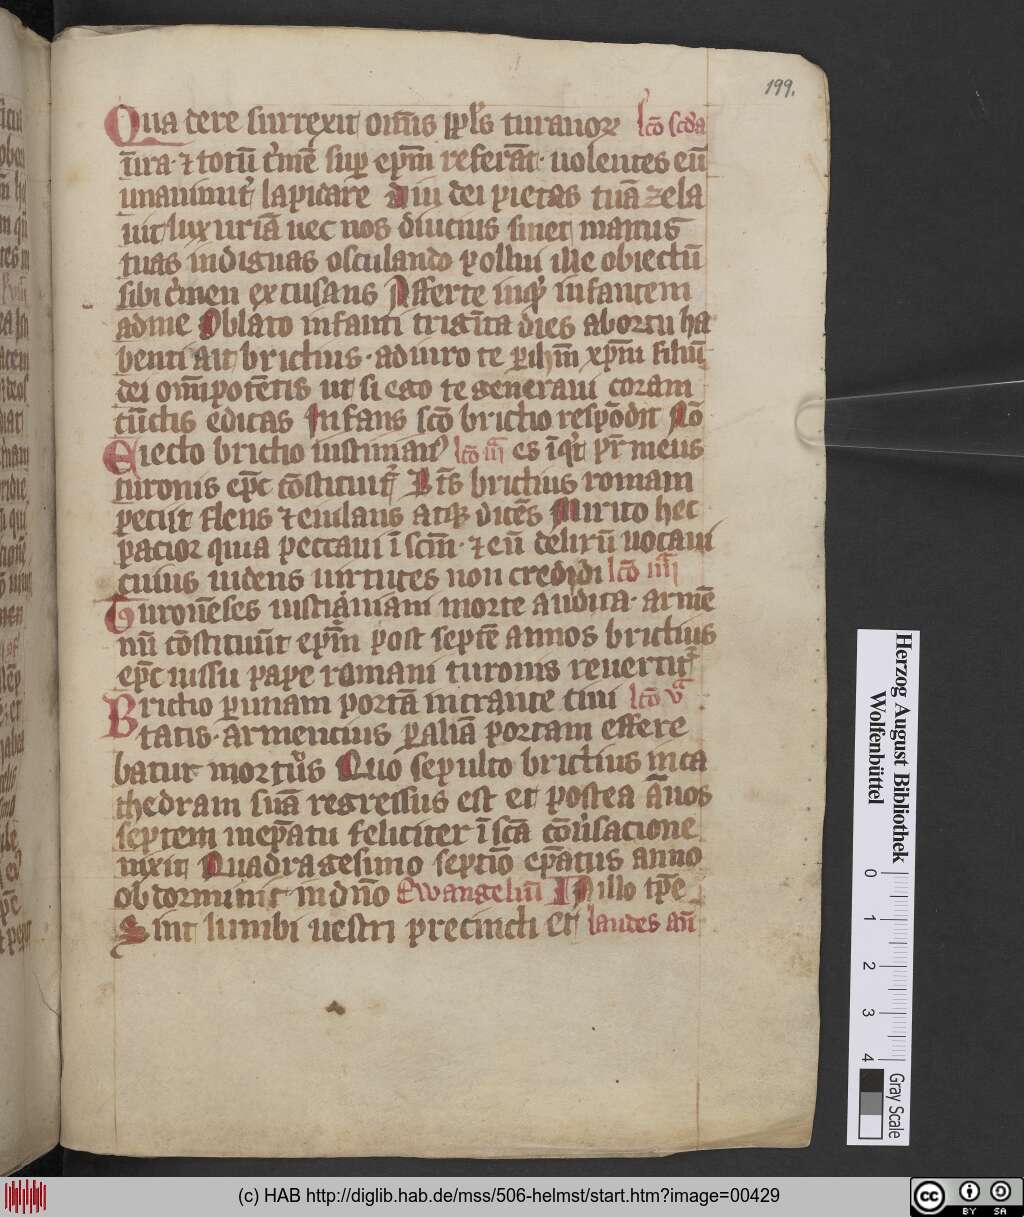 199.
Qua de re surrexit om̄is ppl's turanorꝝ lcō scd'a
īra ⁊ totū c̓mē sup ep̄m referāt uolentes eū
unanimit̓ lapidare diu dei pietas tuā zela
uit luxuriā nec nos diucius sinet manus
tuas indignas osculando pollui ille obiectū
sibi c̓men excusans Afferte inq̓ infantem
adme Oblato infanti trigīta dies abortu ha
benti ait brictius adiuro te p ih̄m xp̄m filiū
dei om̄ipotētis ut si ego te generaui coram
cūctis edicas Infans scō brictio respōdit Nō
Eiecto brictio iustinian᷒ lcō iii es īqt pr̄ meus
turonis ep̄c cōstituit᷑ At̄s brictius romam
peciit flens ⁊ eiulans atqꝫ dicēs Mirito hec
pacior quia peccaui ī scm̄ ⁊ eū delirū uocaui
cuius uidens uirtutes non credidi lcō iiii
Turonēses iustiniani morte audita armē
tiū cōstituūt ep̄m post septē annos brictius
ep̄c iussu pape romani turonis reuertit᷑
Brictio p unam portā intrante ciui lcō v
tatis armentius p aliā portam effere
batur mortuus Quo sepulto brictius in ca
thedram suā regressus est et postea ānos
septem in ep̄atu feliciter ī scā cōu̓sacione
uixit Quadragesimo septiō ep̄atus anno
obdormiuit in dn̄o Ewangeliū In illo tp̄e
Sint lumbi uestri precincti et laudes an̄
Herzog August Bibliothek
Wolfenbüttel
0 1 2 3 4
Gray Scale
(c) HAB http://diglib.hab.de/mss/506-helmst/start.htm?image=00429
cc BY SA